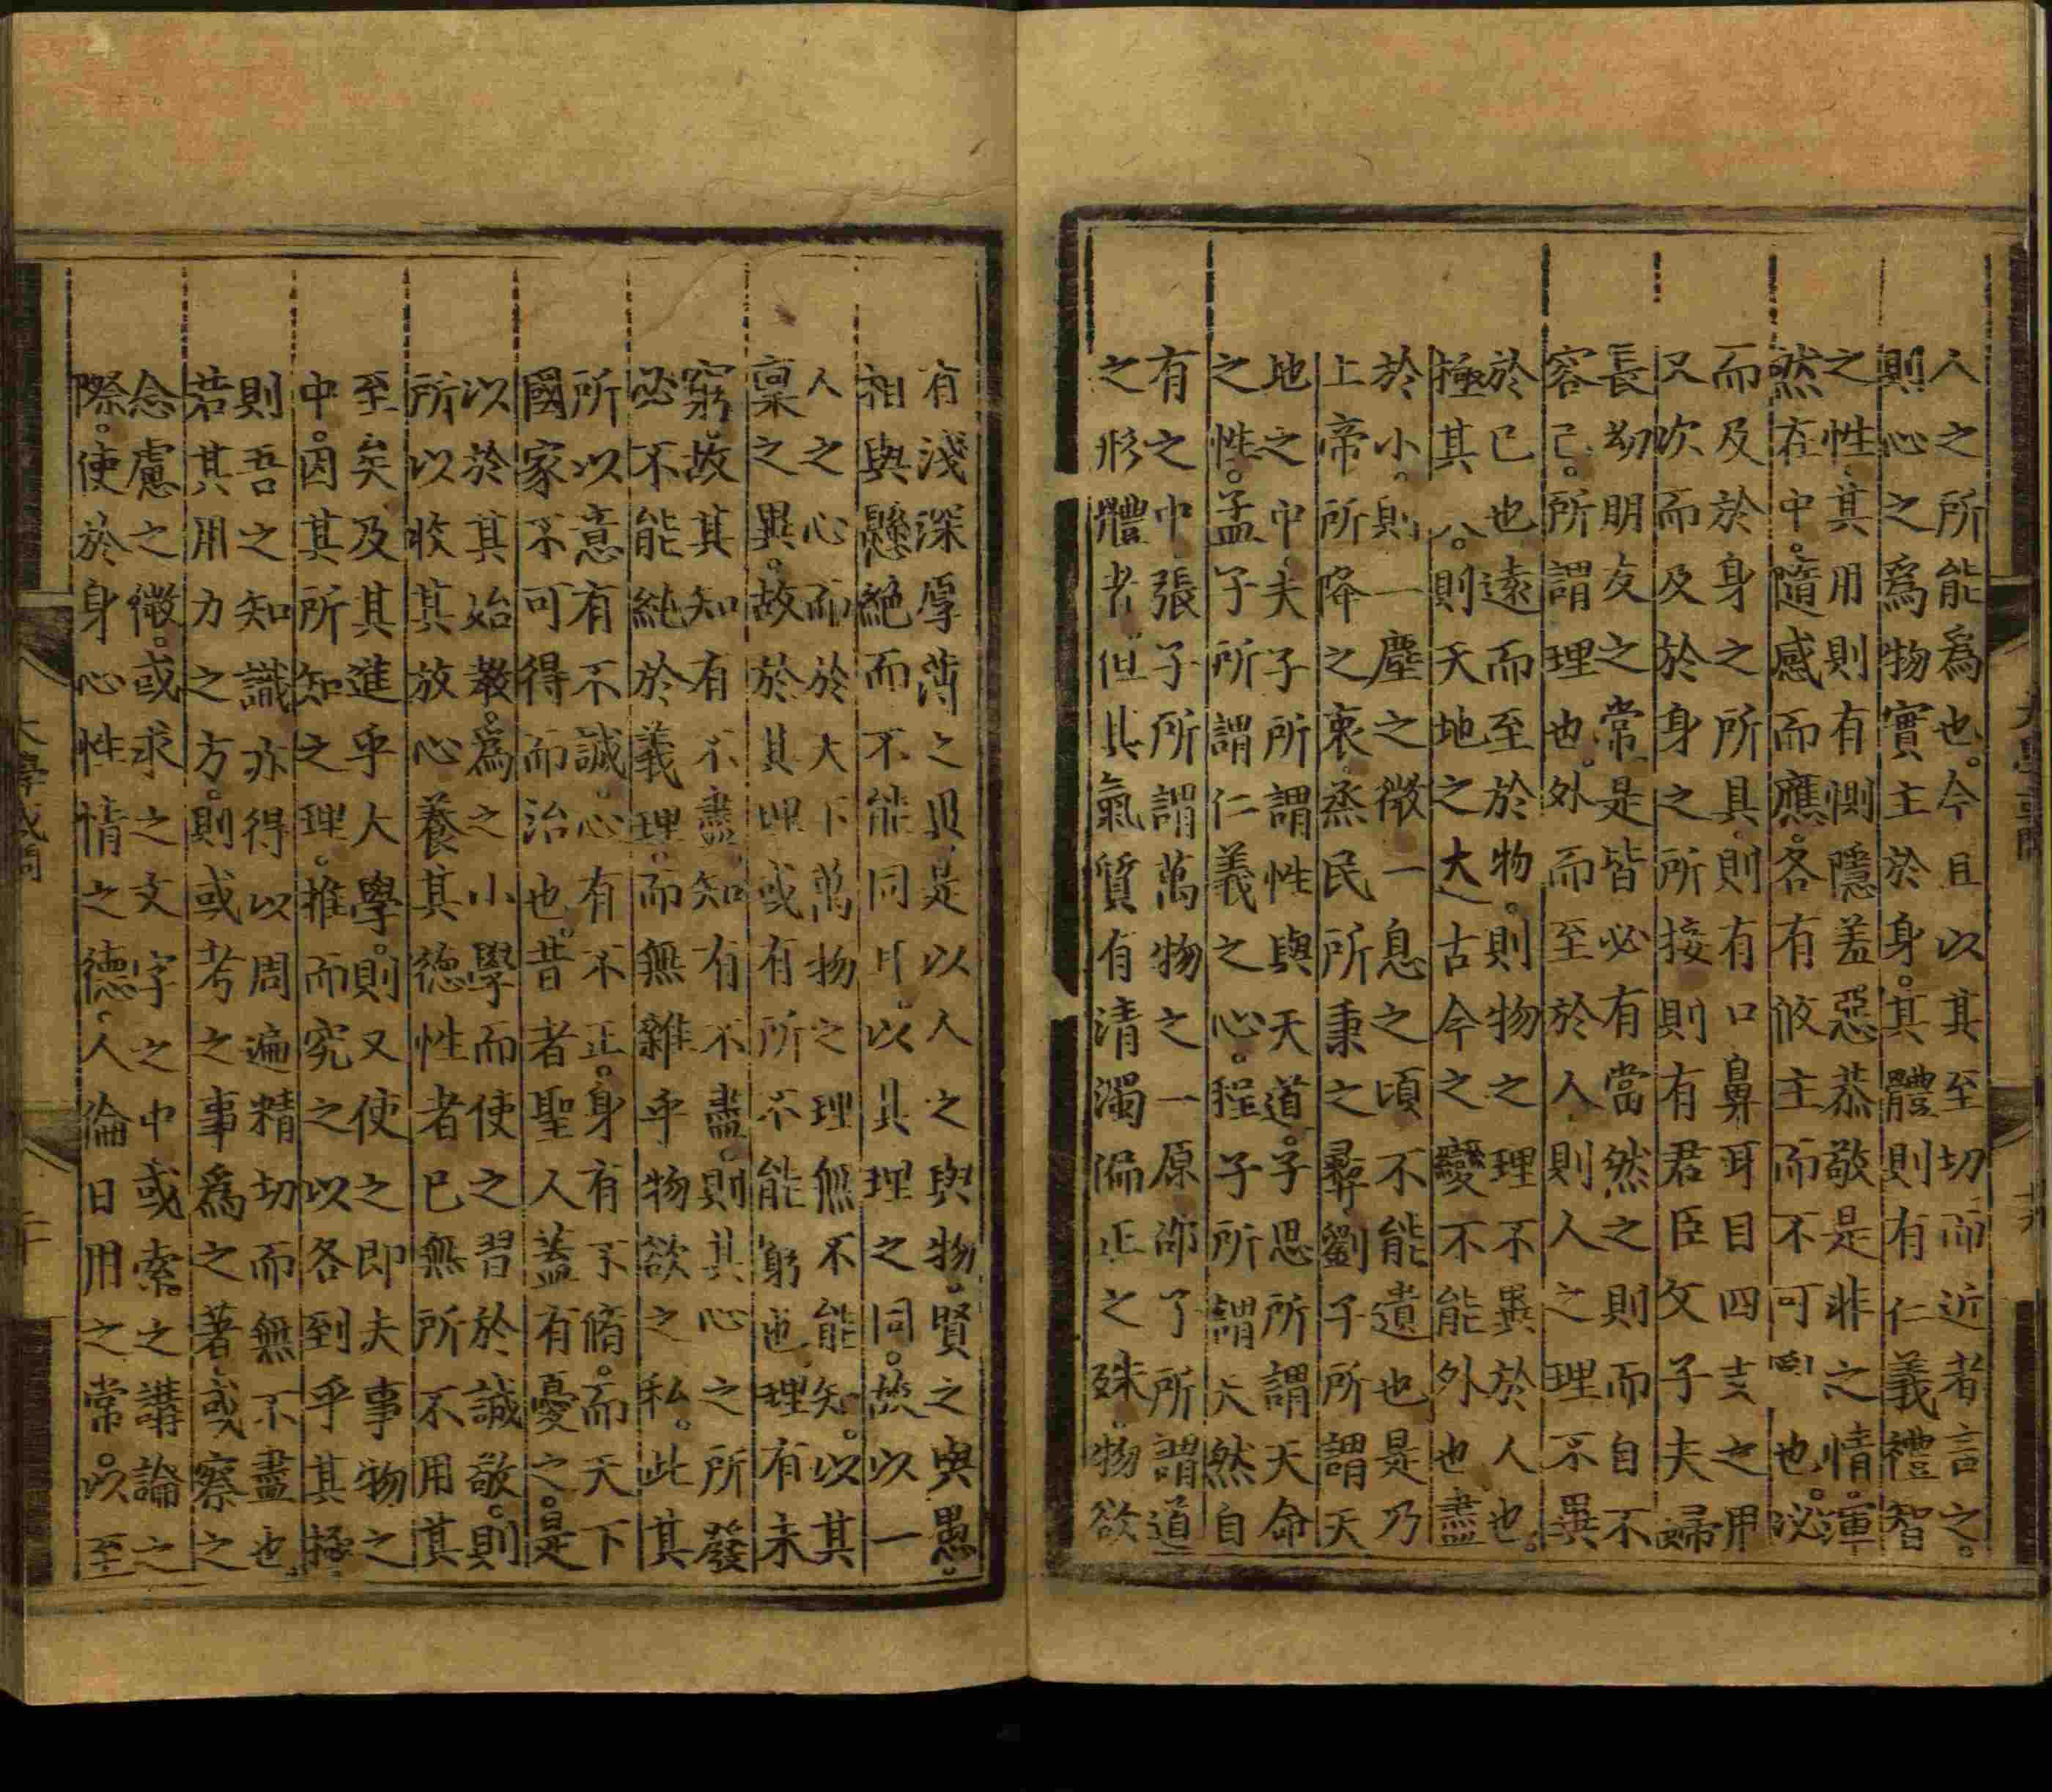 大學或問
十九
人之所能爲也。今且以其至切而近者言之。
則心之爲物實主於身。其體則有仁義禮智
之性其用則有惻隱羞惡恭敬是非之情。渾
然在中。隨感而應。各有攸主而不可也。次
而及於身之所具則有口鼻耳目四支之用
又次而及於身之所接則有君臣父子夫婦
長幼朋友之常。是皆必有當然之則而自不
容已。所謂理也。外而至於人則人之理不異
於己也遠而至於物。則物之理不異於人也。
極其。則天地之大古今之變不能外也盡
於小。則一塵之微一息之頃不能遺也是乃
上帝所降之衷。烝民所秉之彝劉子所謂天
地之中。夫子所謂性與天道。子思所謂天命
之性。孟子所謂仁義之心。程子所謂天然自
有之中張子所謂萬物之一原邵子所謂道
之形體者但其氣質有清濁偏正之殊。物欲
有淺深厚薄之異是以人之與物。賢之與愚。
相與懸絶而不能同耳。以其理之同。故以一
人之心而於天下萬物之理無不能知。以其
稟之異。故於其理或有所不能窮也理有未
窮。故其知有不盡知有不盡。則其心之所發
必不能純於義理。而無雜乎物欲之私。此其
所以意有不誠心有不正。身有不脩。而天下
國家不可得而治也。昔者聖人蓋有憂之。是
以於其始教。爲之小學而使之習於誠敬。則
所以收其放心養其德性者已無所不用其
至矣及其進乎大學。則又使之即夫事物之
中。因其所知之理。推而究之以各到乎其極
則吾之知識亦得以周遍精切而無不盡也。
若其用力之方。則或考之事爲之著或察之
念慮之微。或求之文字之中或索之講論之
際。使於身心性情之德人倫日用之常。以至
大學或問
二十